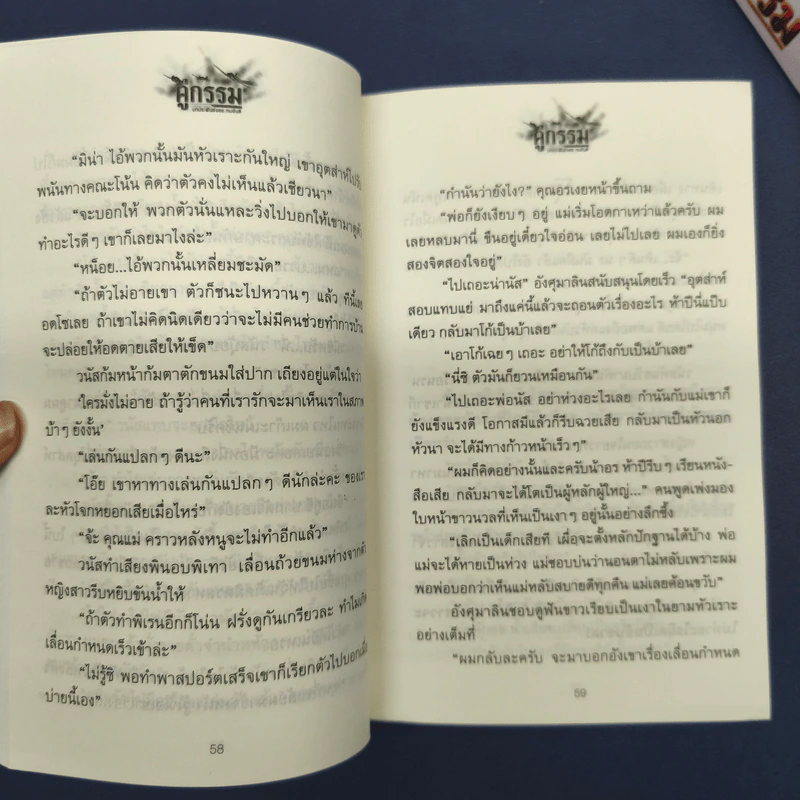 คู่กรรม
“มิน่า ไอ้พวกนั้นมันหัวเราะกันใหญ่ เขาอุตส่าห์ไป
พนันทางคณะโน้น คิดว่าตัวคงไม่เห็นแล้วเชียวนา”
“จะบอกให้ พวกตัวนั่นแหละวิ่งไปบอกให้เขามาดู
ทำอะไรดีๆ เขาก็เลยมาไงล่ะ”
“หน็อย...ไอ้พวกนั้นเหลี่ยมชะมัด”
“ถ้าตัวไม่อายเขา ตัวก็ชนะไปหวานๆ แล้ว ทีนี้เลย
อดโซเลย ถ้าเขาไม่คิดนิดเดียวว่าจะไม่มีคนช่วยทำการบ้าน
จะปล่อยให้อดตายเสียให้เข็ด”
วนัสก้มหน้าก้มตาตักขนมใส่ปาก เถียงอยู่แต่ในใจว่า
‘ใครมั่งไม่อาย ถ้ารู้ว่าคนที่เรารักจะมาเห็นเราในสภาพ
บ้าๆ ยังงั้น’
“เล่นกันแปลกๆ ดีนะ”
“โอ๊ย เขาหาทางเล่นกันแปลกๆ ดีนักล่ะค่ะ ของเรา
ละหัวโจกหยอกเสียเมื่อไหร่”
“จ้ะ คุณแม่ คราวหลังหนูจะไม่ทำอีกแล้ว”
วนัสทำเสียงพินอบพิเทา เลื่อนถ้วยขนมห่างจากตัว
หญิงสาวรีบหยิบขันน้ำให้
“ถ้าตัวทำพิเรนอีกก็โน่น ฝรั่งดูกันเกรียวละ ทำไมเกิด
เลื่อนกำหนดเร็วเข้าล่ะ”
“ไม่รู้ซิ พอทำพาสปอร์ตเสร็จเขาก็เรียกตัวไปบอกเมื่อ
บ่ายนี้เอง”
58
คู่กรรม
“กำนันว่ายังไง?” คุณอรเงยหน้าขึ้นถาม
“พ่อก็ยังเงียบๆ อยู่ แม่เริ่มโอดกาเหว่าแล้วครับ ผม
เลยหลบมานี่ ขืนอยู่เดี๋ยวใจอ่อน เลยไม่ไปเลย ผมเองก็ยิ่ง
สองจิตสองใจอยู่”
“ไปเถอะน่านัส” อังศุมาลินสนับสนุนโดยเร็ว “อุตส่าห์
สอบแทบแย่ มาถึงแค่นี้แล้วจะถอนตัวเรื่องอะไร ห้าปีนี่แป๊บ
เดียว กลับมาโก้เป็นบ้าเลย”
“เอาโก้เฉยๆ เถอะ อย่าให้โก้ถึงกับเป็นบ้าเลย”
“นี่ซิ ตัวมันก็ยวนเหมือนกัน”
“ไปเถอะพ่อนัส อย่าห่วงอะไรเลย กำนันกับแม่เขาก็
ยังแข็งแรงดี โอกาสมีแล้วก็รีบฉวยเสีย กลับมาเป็นหัวนอก
หัวนา จะได้มีทางก้าวหน้าเร็วๆ”
“ผมก็คิดอย่างนั้นและครับน้าอร ห้าปีรีบๆ เรียนหนัง-
สือเสีย กลับมาจะได้โตเป็นผู้หลักผู้ใหญ่...” คนพูดเพ่งมอง
ใบหน้าขาวนวลที่เห็นเป็นเงาๆ อยู่นั้นอย่างลึกซึ้ง
“เลิกเป็นเด็กเสียที เผื่อจะตั้งหลักปักฐานได้บ้าง พ่อ
แม่จะได้หายเป็นห่วง แม่ชอบบ่นว่านอนตาไม่หลับเพราะผม
พอพ่อบอกว่าเห็นแม่หลับสบายดีทุกคืน แม่เลยค้อนขวับ”
อังศุมาลินชอบดูฟันขาวเรียบเป็นเงาในยามหัวเราะ
อย่างเต็มที่
“ผมกลับละครับ จะมาบอกอังเขาเรื่องเลื่อนกำหนด
59